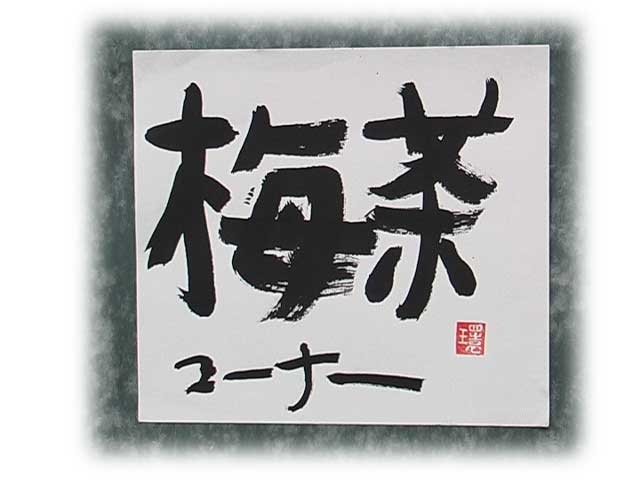 梅茶
コーナー
環